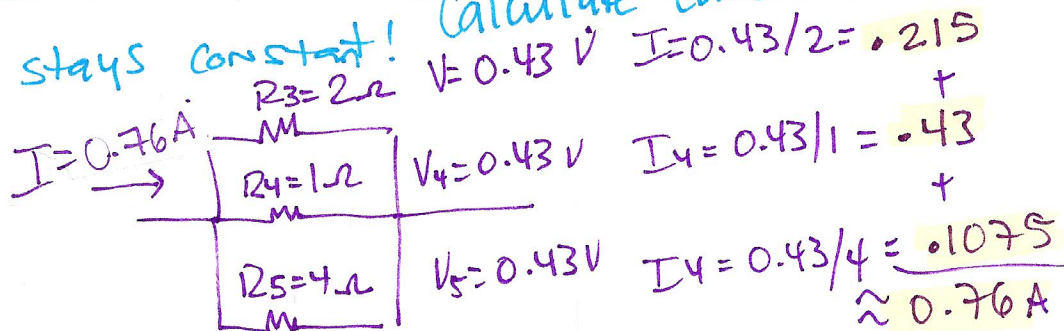 stays constant! Calculate
R3=2Ω V=0.43 V I=0.43/2=.215
+
I=0.76A
R4=1Ω V4=0.43 V I4=0.43/1=.43
+
R5=4Ω V5=0.43V I4=0.43/4=.1075
≈0.76A